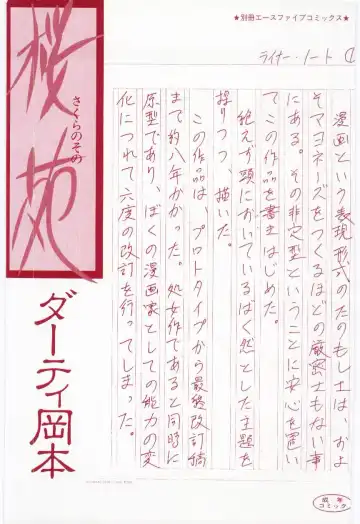 ★別冊エースファイブコミックス★
ライナー・ノート ①
桜苑
さくらのその
ダーティ岡本
漫画という表現形式のたのもしさは、およ
そマヨネーズをつくるほどの厳密さもない事
にある。その非定型ということに安心を置い
てこの作品を書きはじめた。
絶えず頭にかいているばく然とした主題を
探りつつ、描いた。
この作品は、プロトタイプから最終改訂稿
まで約八年がかかった。処女作であると同時に
原型であり、ぼくの漫画家としての能力の変
化につれて六度の改訂を行ってしまった。
成年
コミック